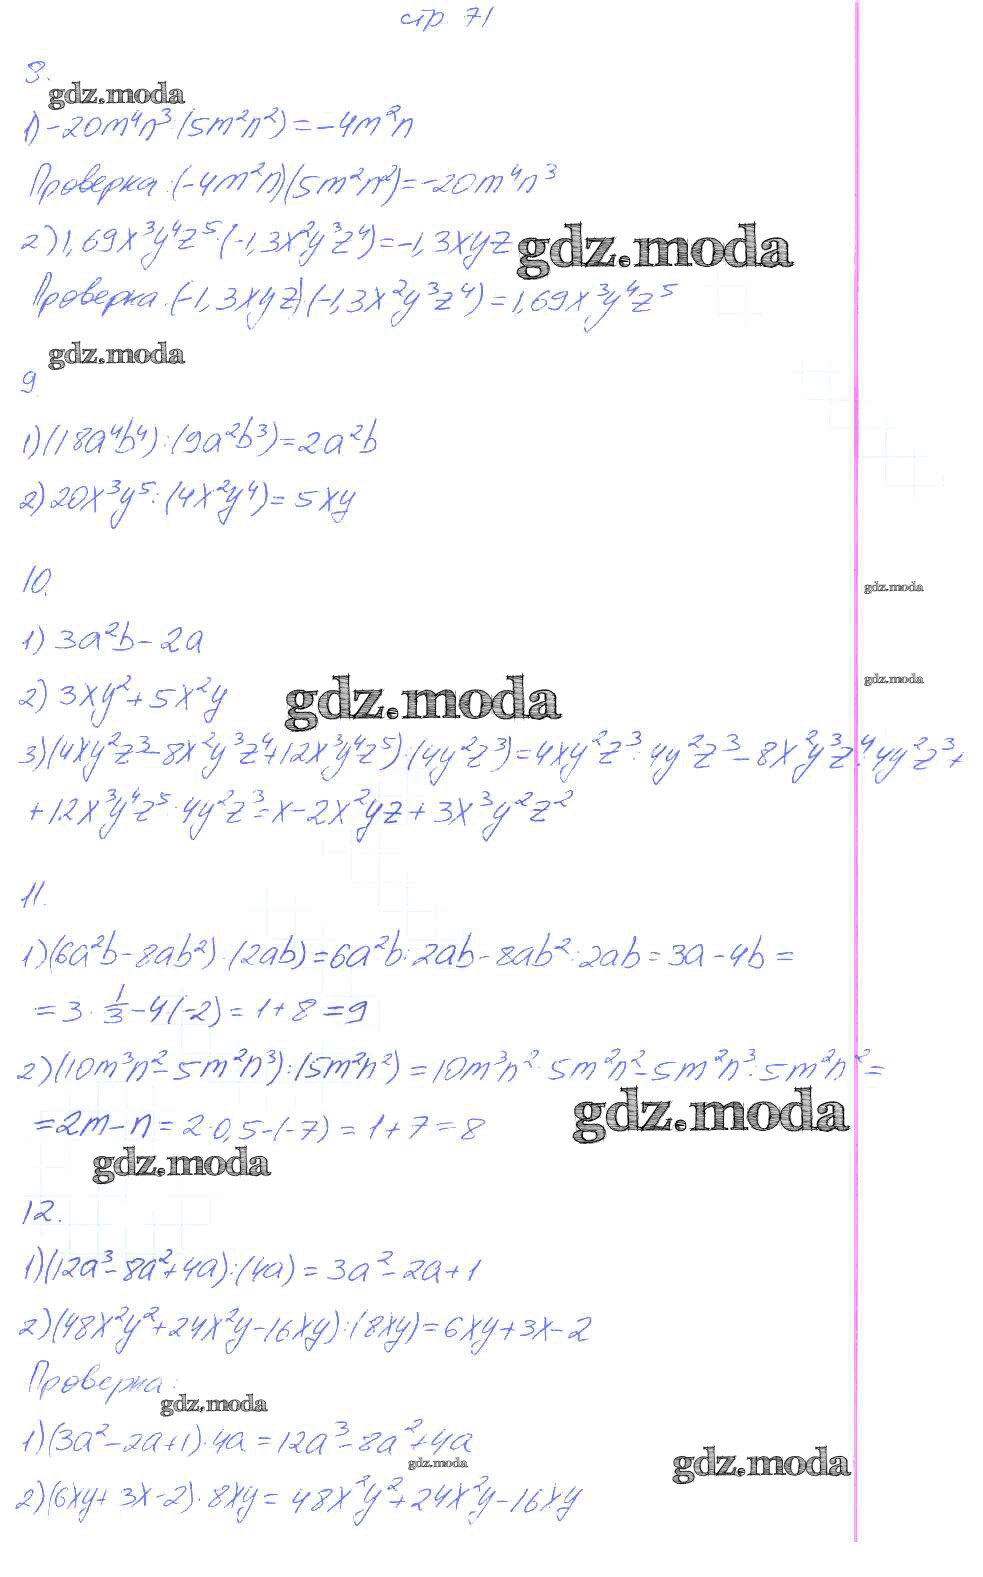 стр. 71
8.
gdz.moda
1) -20m⁴n³:(5m²n²)=-4m²n
Проверка:(-4m²n)(5m²n²)=-20m⁴n³
2) 1,69x³y⁴z⁵:(-1,3x²y³z⁴)=-1,3xyz
gdz.moda
Проверка:(-1,3xyz)·(-1,3x²y³z⁴)=1,69x³y⁴z⁵
gdz.moda
9
1)(18a⁴b⁴):(9a²b³)=2a²b
2) 20x³y⁵:(4x²y⁴)=5xy
10.
gdz.moda
1) 3a²b-2a
2) 3xy²+5x²y
gdz.moda
gdz.moda
3)(4xy²z³-8x²y³z⁴+12x³y⁴z⁵):(4y²z³)=4xy²z³:4y²z³-8x²y³z⁴:4y²z³+
+12x³y⁴z⁵:4y²z³=x-2x²yz+3x³y²z²
11.
1)(6a²b-8ab²):(2ab)=6a²b:2ab-8ab²:2ab=3a-4b=
=3·1/3-4(-2)=1+8=9
2)(10m³n²-5m²n³):(5m²n²)=10m³n²:5m²n²-5m²n³:5m²n²=
=2m-n=2·0,5-(-7)=1+7=8
gdz.moda
gdz.moda
12.
1)(12a³-8a²+4a):(4a)=3a²-2a+1
2)(48x²y²+24x²y-16xy):(8xy)=6xy+3x-2
Проверка:
gdz.moda
1)(3a²-2a+1)·4a=12a³-8a²+4a
gdz.moda
gdz.moda
2)(6xy+3x-2)·8xy=48x²y²+24x²y-16xy